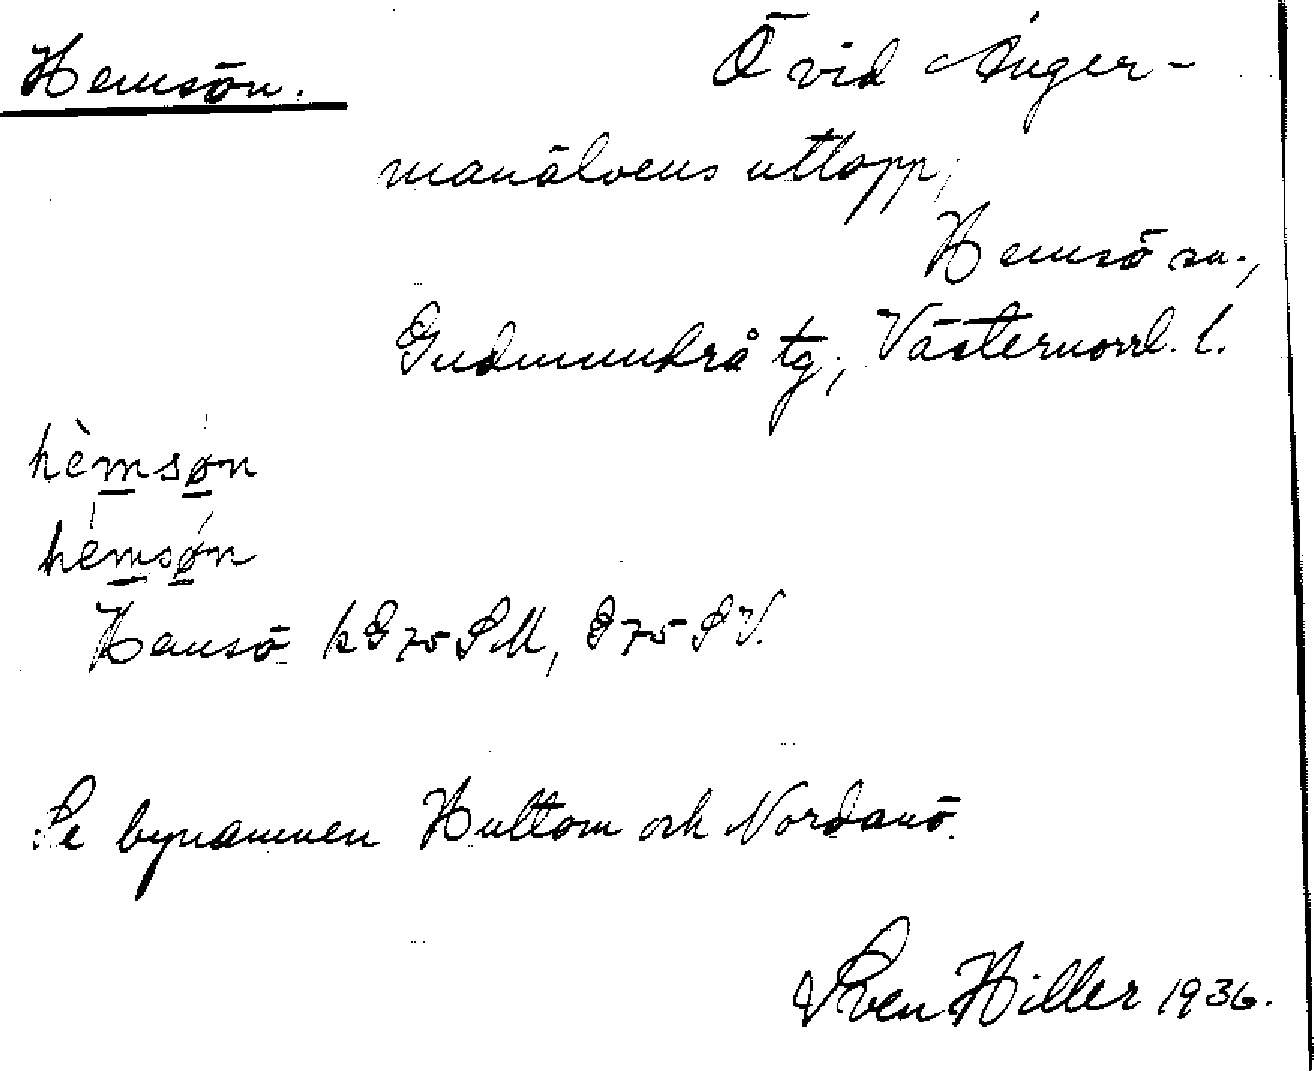 Hemsön. Ö vid Ånger-
manälvens utlopp,
Hemsö sn.,
Gudmundrå tg, Västernorrl. l.
hèmsøn
hèmsøn
Hansö kG 75 SM, G 75 SV.
Se bynamnen Hultom och Nordanö.
Sven Hiller 1936.